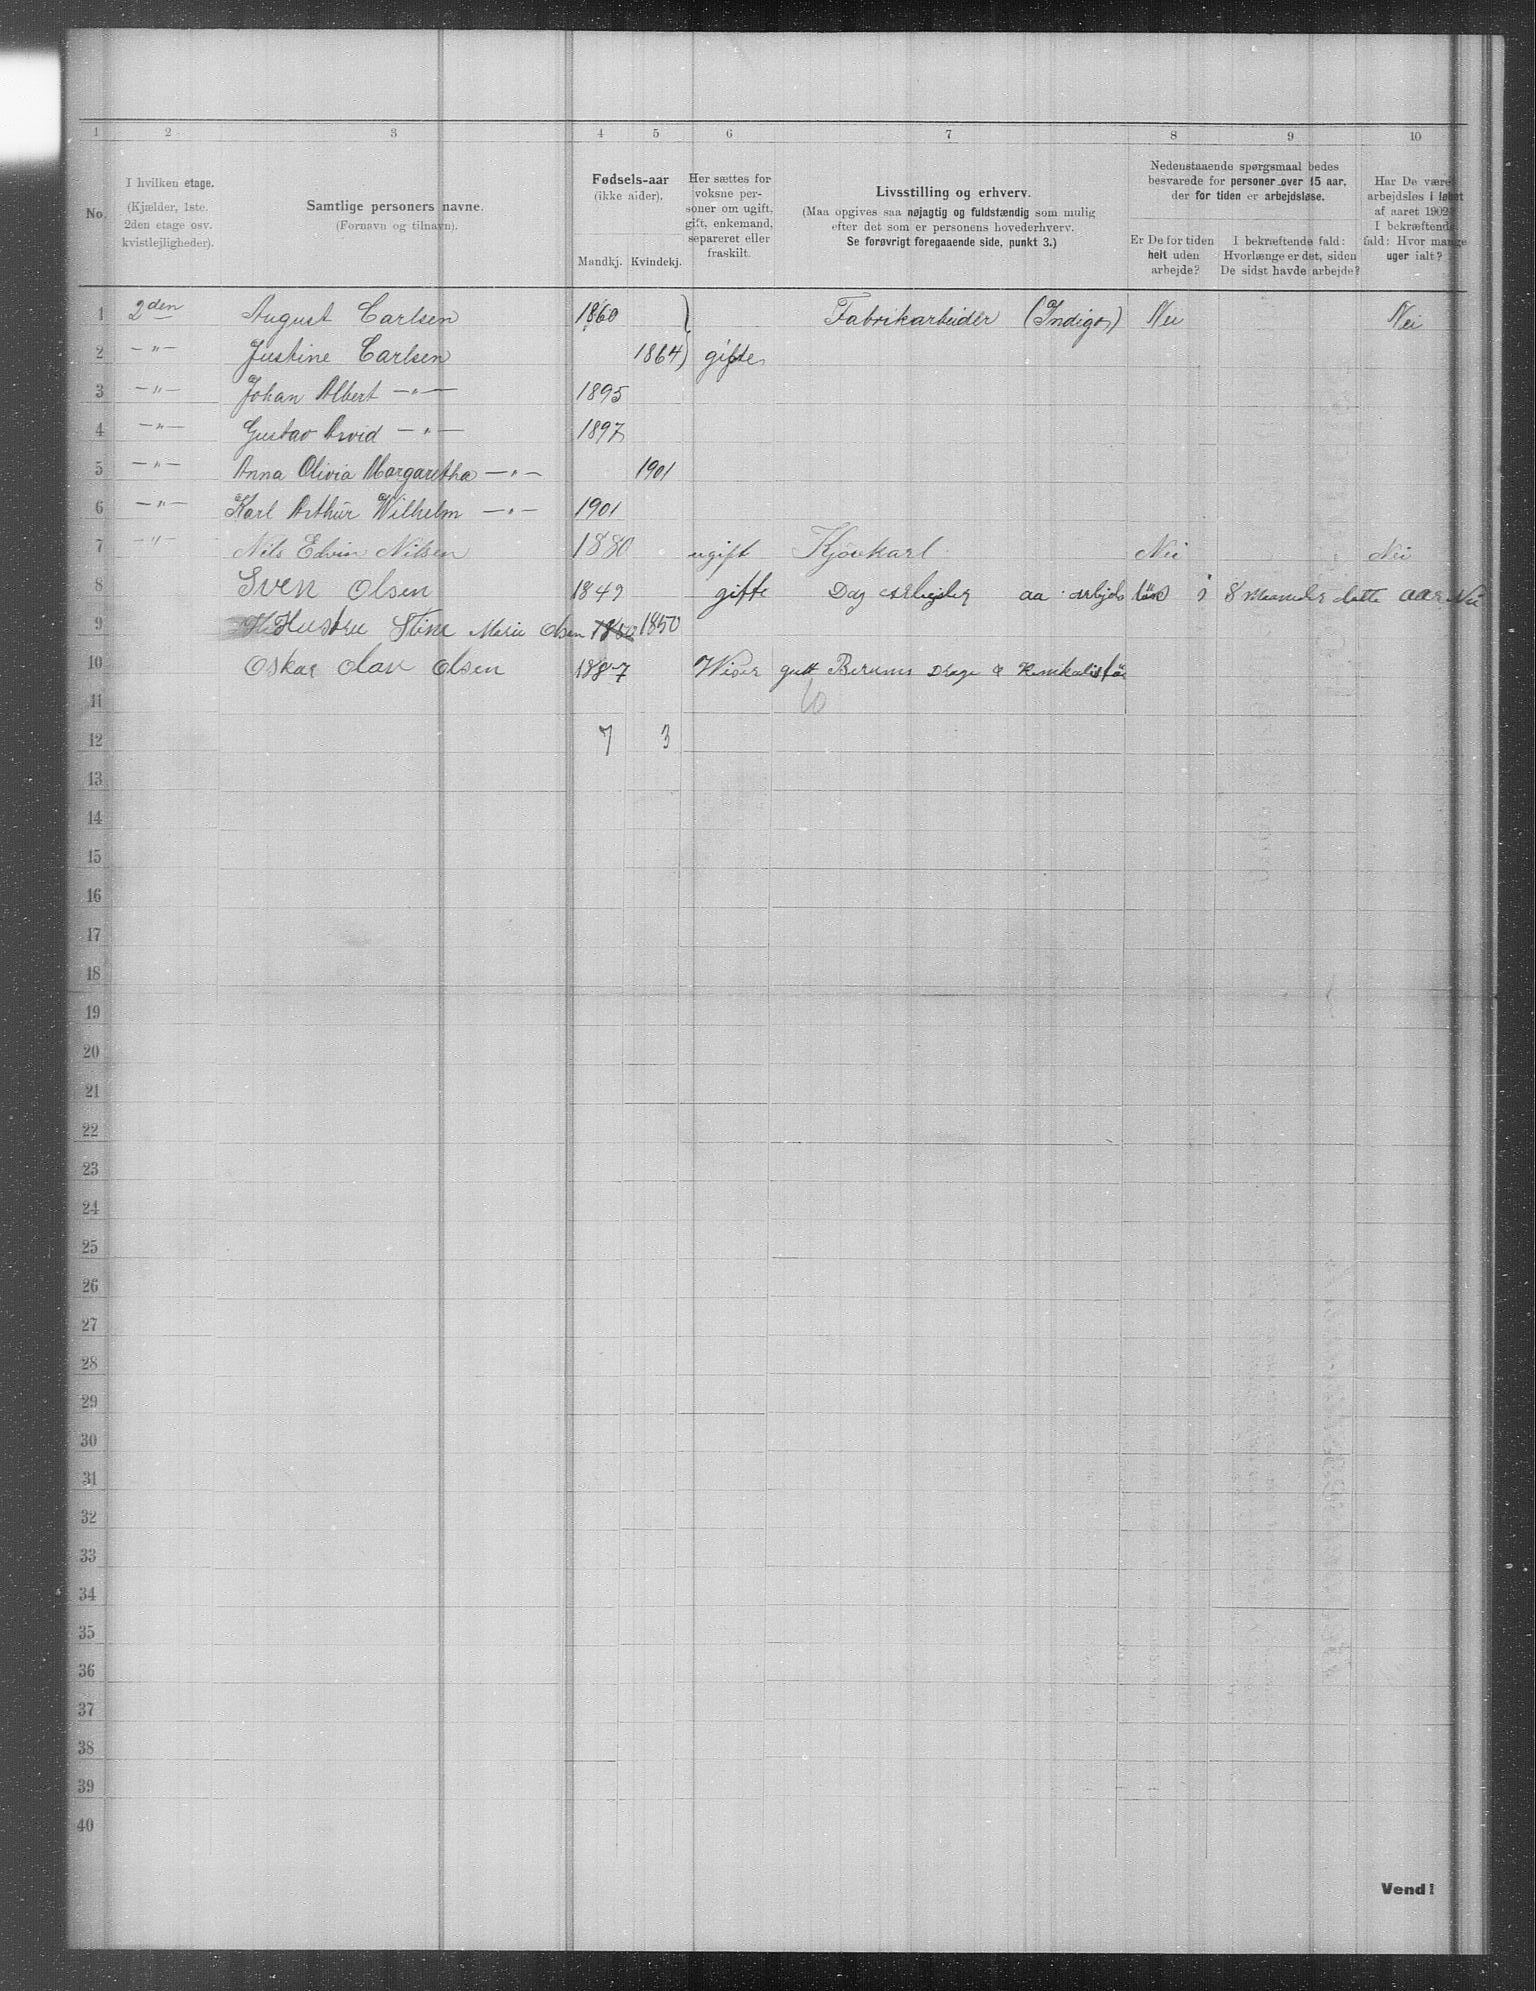 1 2 3 4 5 6 7 8 9 10
No.
I hvilken etage.
(Kjælder, 1ste.
2den etage osv.
kvistlejligheder).
Samtlige personers navne.
(Fornavn og tilnavn).
Fødsels-aar
(ikke alder).
Mandkj. Kvindekj.
Her sættes for
voksne per-
soner om ugift,
gift, enkemand,
separeret eller
fraskilt.
Livsstilling og erhverv.
(Maa opgives saa nøjagtig og fuldstændig som mulig
efter det som er personens hovederhverv.
Se forøvrigt foregaaende side, punkt 3.)
Nedenstaaende spørgsmaal bedes
besvarede for personer over 15 aar,
der for tiden er arbejdsløse.
Er De for tiden
helt uden
arbejde?
I bekræftende fald:
Hvorlænge er det, siden
De sidst havde arbejde?
Har De været
arbejdsløs i løbet
af aaret 1902?
I bekræftende
fald: Hvor mange
uger ialt?
1 2den August Carlsen 1860 } Fabrikarbeider (Indigo) Nei Nei
2 —"— Justine Carlsen 1864 gifte
3 —"— Johan Albert —"— 1895
4 —"— Gustav Arvid —"— 1897
5 —"— Anna Olivia Margaretha —"— 1901
6 —"— Karl Arthur Wilhelm —"— 1901
7 —"— Nils Edvin Nilsen 1880 ugift Kjøvkarl Nei Nei
8 Sven Olsen 1849 gifte Dag arbejder aa arbejds løs i 8 maaneder dette aar Nei
9 Hustru Stine Marie Olsen 1850 1850
10 Oskar Olav Olsen 1887 Viser gutt Berums Droge &
11
12 7 3
13
14
15
16
17
18
19
20
21
22
23
24
25
26
27
28
29
30
31
32
33
34
35
36
37
38
39
40
Vend!